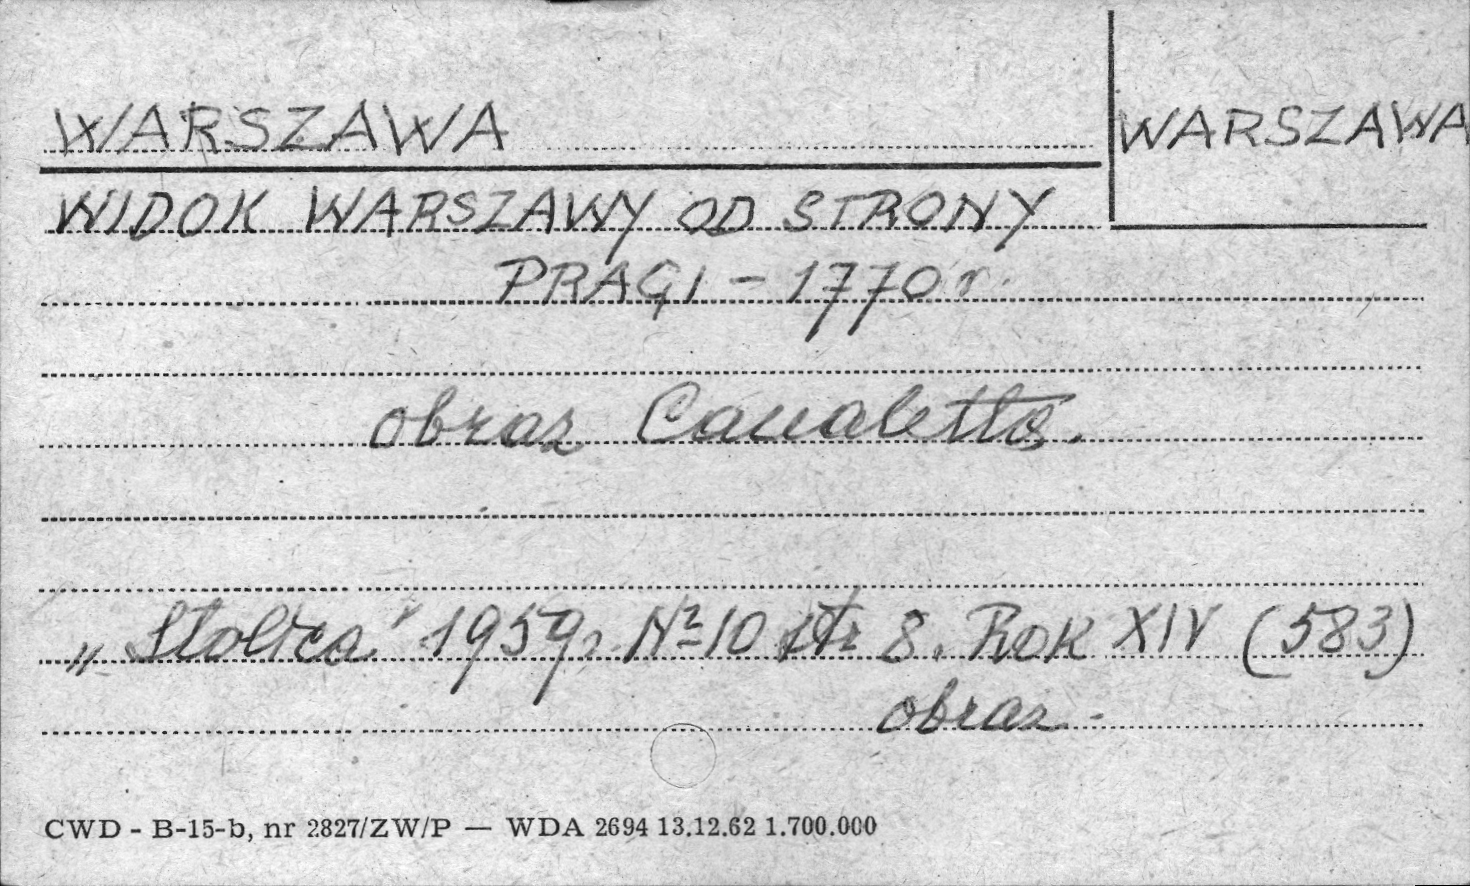 WARSZAWA
WARSZAWA
WIDOK WARSZAWY OD STRONY
PRAGI - 1770 r.
obraz Canaletta.
„Stolica" 1959r. № 10 str 8. Rok XIV (583)
obraz -
CWD - B-15-b, nr 2827/ZW/P — WDA 2694 13.12.62 1.700.000